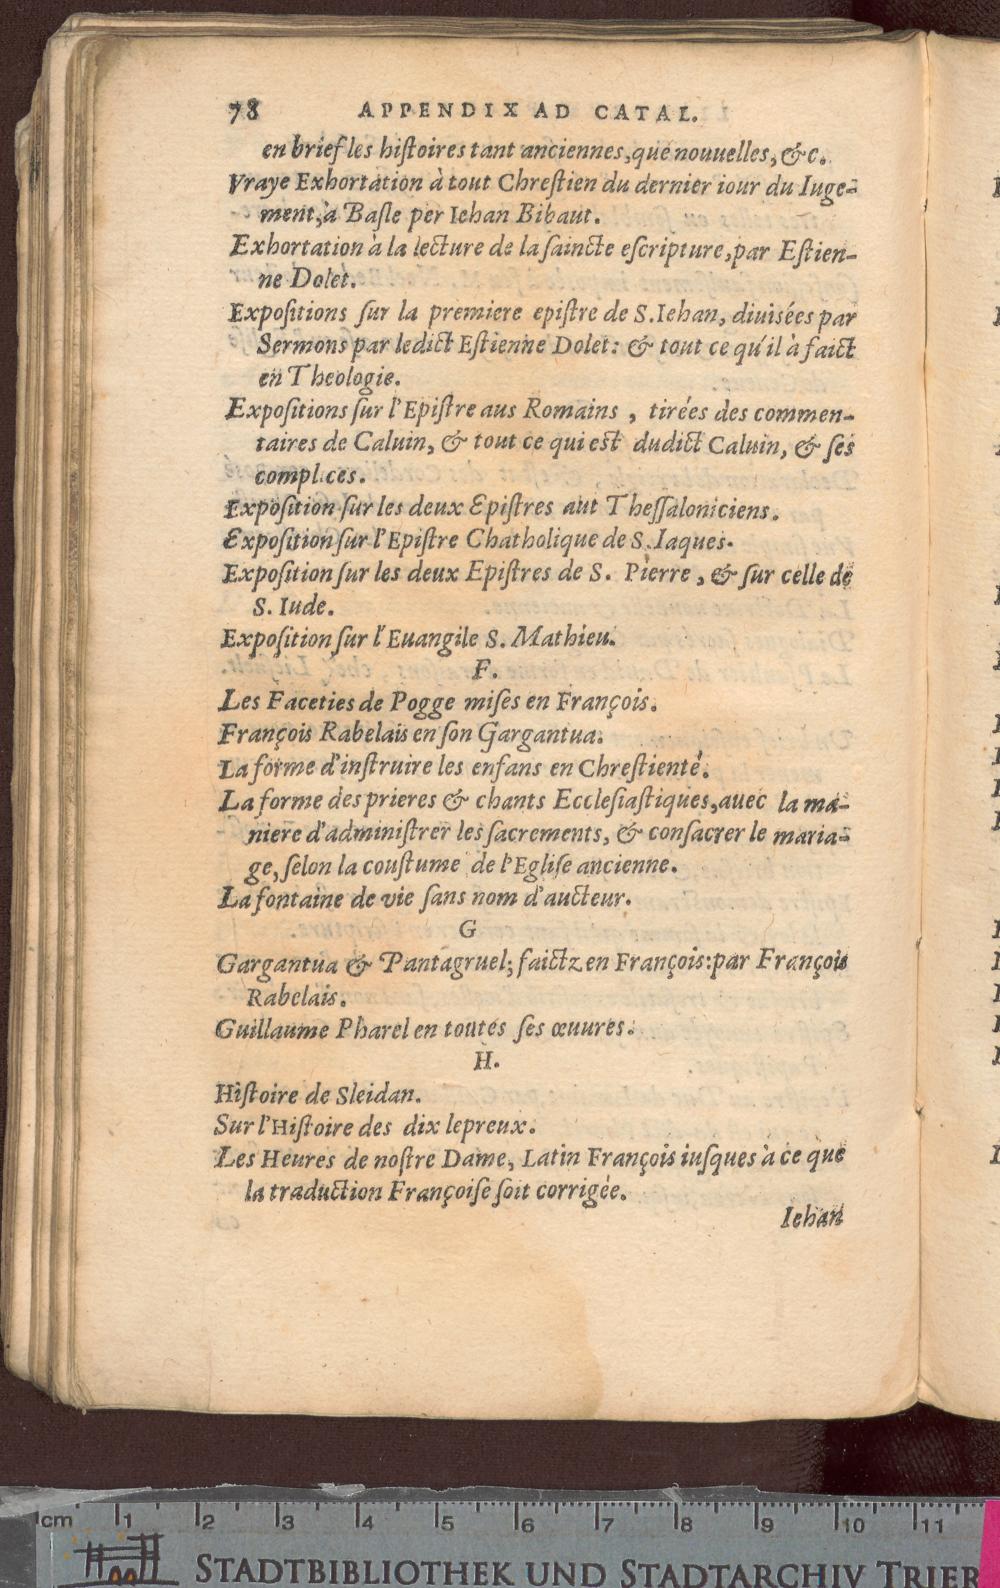 78 APPENDIX AD CATAL.
en brief les hiſtoires tant anciennes, que nouuelles, &c.
Vraye Exhortation à tout Chreſtien du dernier iour du Iuge-
ment, à Baſle per Iehan Bibaut.
Exhortation à la lecture de la ſaincte eſcripture, par Eſtien-
ne Dolet.
Expoſitions ſur la premiere epiſtre de S. Iehan, diuisées par
Sermons par ledict Eſtienne Dolet: & tout ce qu'il à faict
en Theologie.
Expoſitions ſur l'Epiſtre aus Romains, tirées des commen-
taires de Caluin, & tout ce qui est dudict Caluin, & ſes
complices.
Expoſition ſur les deux Epiſtres aut Theſſaloniciens.
Expoſition ſur l'Epiſtre Chatholique de S. Iaques.
Expoſition ſur les deux Epiſtres de S. Pierre, & ſur celle de
S. Iude.
Expoſition ſur l'Euangile S. Mathieu.
F.
Les Faceties de Pogge miſes en François.
François Rabelais en ſon Gargantua.
La forme d'inſtruire les enfans en Chreſtienté.
La forme des prieres & chants Eccleſiaſtiques, auec la ma-
niere d'adminiſtrer les ſacrements, & conſacrer le maria-
ge, ſelon la couſtume de l'Egliſe ancienne.
La fontaine de vie ſans nom d'aucteur.
G
Gargantua & Pantagruel; faictz en François: par François
Rabelais.
Guillaume Pharel en toutes ſes œuures.
H.
Hiſtoire de Sleidan.
Sur l'Hiſtoire des dix lepreux.
Les Heures de noſtre Dame, Latin François iuſques à ce que
la traduction Françoiſe ſoit corrigée.
Iehan
cm 1 2 3 4 5 6 7 8 9 10 11
STADTBIBLIOTHEK UND STADTARCHIV TRIER